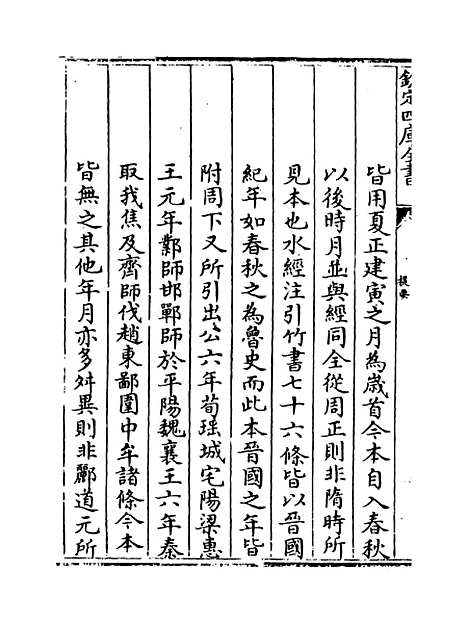 欽定四庫全書
提要
皆用夏正建寅之月為歲首今本自入春秋
以後時月並與經同全從周正則非隋時所
見本也水經注引竹書七十六條皆以晉國
紀年如春秋之為魯史而此本晉國之年皆
附周下又所引出公六年荀瑶城宅陽梁惠
王元年鄴師邯鄲師於平陽魏襄王六年秦
取我焦及齊師伐趙東鄙圍中牟諸條今本
皆無之其他年月亦多舛異則非酈道元所